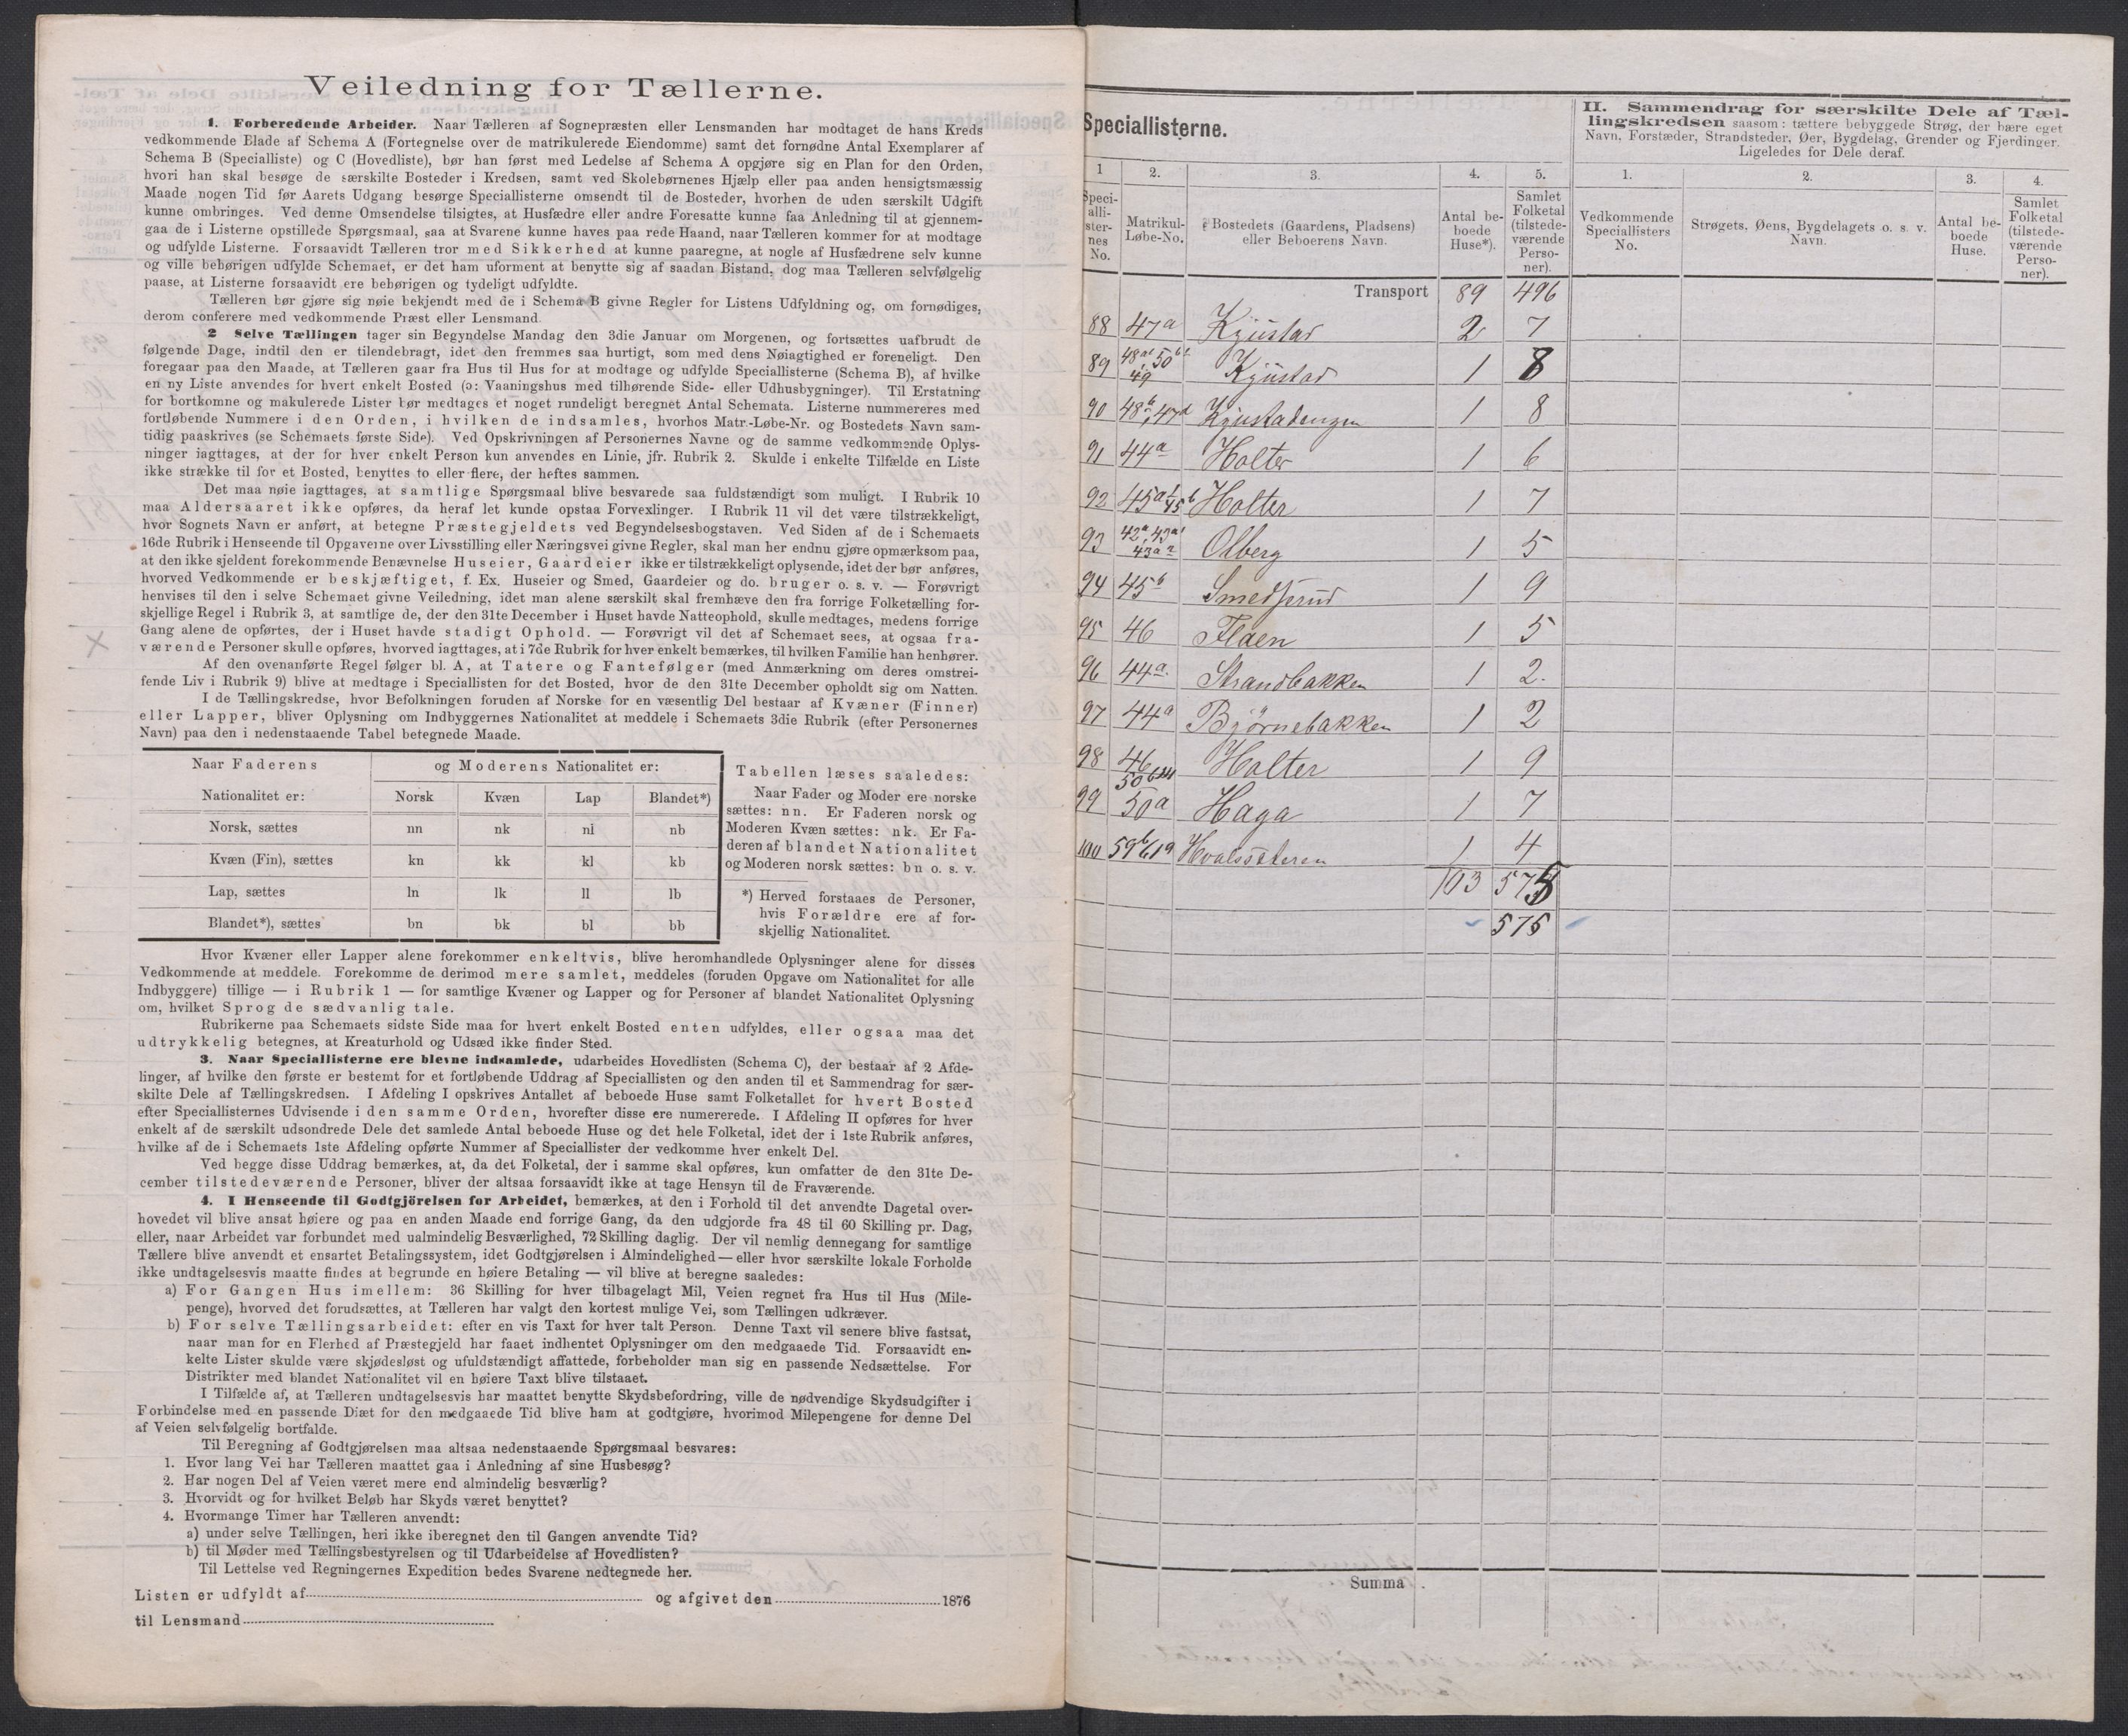 Veiledning for Tællerne.
1. Forberedende Arbeider. Naar Tælleren af Sognepræsten eller Lensmanden har modtaget de hans Kreds
vedkommende Blade af Schema A (Fortegnelse over de matrikulerede Eiendomme) samt det fornødne Antal Exemplarer af
Schema B (Specialliste) og C (Hovedliste), bør han først med Ledelse af Schema A opgjøre sig en Plan for den Orden,
hvori han skal besøge de særskilte Bosteder i Kredsen, samt ved Skolebørnenes Hjælp eller paa anden hensigtsmæssig
Maade nogen Tid før Aarets Udgang besørge Speciallisterne omsendt til de Bosteder, hvorhen de uden særskilt Udgift
kunne ombringes. Ved denne Omsendelse tilsigtes, at Husfædre eller andre Foresatte kunne faa Anledning til at gjennem-
gaa de i Listerne opstillede Spørgsmaal, saa at Svarene kunne haves paa rede Haand, naar Tælleren kommer for at modtage
og udfylde Listerne. Forsaavidt Tælleren tror med Sikkerhed at kunne paaregne, at nogle af Husfædrene selv kunne
og ville behørigen udfylde Schemaet, er det ham uforment at benytte sig af saadan Bistand, dog maa Tælleren selvfølgelig
paase, at Listerne forsaavidt ere behørigen og tydeligt udfyldte.
Tælleren bør gjøre sig nøie bekjendt med de i Schema B givne Regler for Listens Udfyldning og, om fornødiges,
derom conferere med vedkommende Præst eller Lensmand.
2 Selve Tællingen tager sin Begyndelse Mandag den 3die Januar om Morgenen, og fortsættes uafbrudt de
følgende Dage, indtil den er tilendebragt, idet den fremmes saa hurtigt, som med dens Nøiagtighed er foreneligt. Den
foregaar paa den Maade, at Tælleren gaar fra Hus til Hus for at modtage og udfylde Speciallisterne (Schema B), af hvilke
en ny Liste anvendes for hvert enkelt Bosted (ɔ: Vaaningshus med tilhørende Side- eller Udhusbygninger). Til Erstatning
for bortkomne og makulerede Lister bør medtages et noget rundeligt beregnet Antal Schemata. Listerne nummereres med
fortløbende Nummere i den Orden, i hvilken de indsamles, hvorhos Matr.-Løbe-Nr. og Bostedets Navn sam-
tidig paaskrives (se Schemaets første Side). Ved Opskrivningen af Personernes Navne og de samme vedkommende Oplys-
ninger iagttages, at der for hver enkelt Person kun anvendes en Linie, jfr. Rubrik 2. Skulde i enkelte Tilfælde en Liste
ikke strække til for et Bosted, benyttes to eller flere, der heftes sammen.
Det maa nøie iagttages, at samtlige Spørgsmaal blive besvarede saa fuldstændigt som muligt. I Rubrik 10
maa Aldersaaret ikke opføres, da heraf let kunde opstaa Forvexlinger. I Rubrik 11 vil det være tilstrækkeligt,
hvor Sognets Navn er anført, at betegne Præstegjeldets ved Begyndelsesbogstaven. Ved Siden af de i Schemaets
16de Rubrik i Henseende til Opgaverne over Livsstilling eller Næringsvei givne Regler, skal man her endnu gjøre opmærksom paa,
at den ikke sjeldent forekommende Benævnelse Huseier, Gaardeier ikke er tilstrækkeligt oplysende, idet der bør anføres,
hvorved Vedkommende er beskjæftiget, f. Ex. Huseier og Smed, Gaardeier og do. bruger o. s. v. — Forøvrigt
henvises til den i selve Schemaet givne Veiledning, idet man alene særskilt skal fremhæve den fra forrige Folketælling for-
skjellige Regel i Rubrik 3, at samtlige de, der den 31te December i Huset havde Natteophold, skulle medtages, medens forrige
Gang alene de opførtes, der i Huset havde stadigt Ophold. — Forøvrigt vil det af Schemaet sees, at ogsaa fra-
værende Personer skulle opføres, hvorved iagttages, at i 7de Rubrik for hver enkelt bemærkes, til hvilken Familie han henhører.
Af den ovenanførte Regel følger bl. A, at Tatere og Fantefølger (med Anmærkning om deres omstrei-
fende Liv i Rubrik 9) blive at medtage i Speciallisten for det Bosted, hvor de den 31te December opholdt sig om Natten.
I de Tællingskredse, hvor Befolkningen foruden af Norske for en væsentlig Del bestaar af Kvæner (Finner)
eller Lapper, bliver Oplysning om Indbyggernes Nationalitet at meddele i Schemaets 3die Rubrik (efter Personernes
Navn) paa den i nedenstaaende Tabel betegnede Maade.
Naar Faderens og Moderens Nationalitet er:
Nationalitet er: Norsk Kvæn Lap Blandet*)
Norsk, sættes nn nk nl nb
Kvæn (Fin), sættes kn kk kl kb
Lap, sættes ln lk ll lb
Blandet*), sættes bn bk bl bb
Tabellen læses saaledes:
Naar Fader og Moder ere norske
sættes: nn. Er Faderen norsk og
Moderen Kvæn sættes: nk. Er Fa-
deren af blandet Nationalitet
og Moderen norsk sættes: bn o. s. v.
*) Herved forstaaes de Personer,
hvis Forældre ere af for-
skjellig Nationalitet.
Hvor Kvæner eller Lapper alene forekommer enkeltvis, blive heromhandlede Oplysninger alene for disses
Vedkommende at meddele. Forekomme de derimod mere samlet, meddeles (foruden Opgave om Nationalitet for alle
Indbyggere) tillige — i Rubrik 1 — for samtlige Kvæner og Lapper og for Personer af blandet Nationalitet Oplysning
om, hvilket Sprog de sædvanlig tale.
Rubrikerne paa Schemaets sidste Side maa for hvert enkelt Bosted enten udfyldes, eller ogsaa maa det
udtrykkelig betegnes, at Kreaturhold og Udsæd ikke finder Sted.
3. Naar Speciallisterne ere blevne indsamlede, udarbeides Hovedlisten (Schema C), der bestaar af 2 Afde-
linger, af hvilke den første er bestemt for et fortløbende Uddrag af Speciallisten og den anden til et Sammendrag for sær-
skilte Dele af Tællingskredsen. I Afdeling I opskrives Antallet af beboede Huse samt Folketallet for hvert Bosted
efter Speciallisternes Udvisende i den samme Orden, hvorefter disse ere numererede. I Afdeling II opføres for hver
enkelt af de særskilt udsondrede Dele det samlede Antal beboede Huse og det hele Folketal, idet der i 1ste Rubrik anføres,
hvilke af de i Schemaets 1ste Afdeling opførte Nummer af Speciallister der vedkomme hver enkelt Del.
Ved begge disse Uddrag bemærkes, at, da det Folketal, der i samme skal opføres, kun omfatter de den 31te De-
cember tilstedeværende Personer, bliver der altsaa forsaavidt ikke at tage Hensyn til de Fraværende.
4. I Henseende til Godtgjörelsen for Arbeidet, bemærkes, at den i Forhold til det anvendte Dagetal over-
hovedet vil blive ansat høiere og paa en anden Maade end forrige Gang, da den udgjorde fra 48 til 60 Skilling pr. Dag,
eller, naar Arbeidet var forbundet med ualmindelig Besværlighed, 72 Skilling daglig. Der vil nemlig dennegang for samtlige
Tællere blive anvendt et ensartet Betalingssystem, idet Godtgjørelsen i Almindelighed — eller hvor særskilte lokale Forholde
ikke undtagelsesvis maatte findes at begrunde en høiere Betaling — vil blive at beregne saaledes:
a) For Gangen Hus imellem: 36 Skilling for hver tilbagelagt Mil, Veien regnet fra Hus til Hus (Mile-
penge), hvorved det forudsættes, at Tælleren har valgt den kortest mulige Vei, som Tællingen udkræver.
b) For selve Tællingsarbeidet: efter en vis Taxt for hver talt Person. Denne Taxt vil senere blive fastsat,
naar man for en Flerhed af Præstegjeld har faaet indhentet Oplysninger om den medgaaede Tid. Forsaavidt en-
kelte Lister skulde være skjødesløst og ufuldstændigt affattede, forbeholder man sig en passende Nedsættelse. For
Distrikter med blandet Nationalitet vil en høiere Taxt blive tilstaaet.
I Tilfælde af, at Tælleren undtagelsesvis har maattet benytte Skydsbefordring, ville de nødvendige Skydsudgifter i
Forbindelse med en passende Diæt for den medgaaede Tid blive ham at godtgjøre, hvorimod Milepengene for denne Del
af Veien selvfølgelig bortfalde.
Til Beregning af Godtgjørelsen maa altsaa nedenstaaende Spørgsmaal besvares:
1. Hvor lang Vei har Tælleren maattet gaa i Anledning af sine Husbesøg?
2. Har nogen Del af Veien været mere end almindelig besværlig?
3. Hvorvidt og for hvilket Beløb har Skyds været benyttet?
4. Hvormange Timer har Tælleren anvendt:
a) under selve Tællingen, heri ikke iberegnet den til Gangen anvendte Tid?
b) til Møder med Tællingsbestyrelsen og til Udarbeidelse af Hovedlisten?
Til Lettelse ved Regningernes Expedition bedes Svarene nedtegnede her.
Listen er udfyldt af og afgivet den 1876
til Lensmand
Speciallisterne.
1 2. 3. 4. 5.
Speci-
alli-
ster-
nes
No.
Matrikul-
Løbe-No.
Bostedets (Gaardens, Pladsens)
eller Beboerens Navn.
Antal be-
boede
Huse*).
Samlet
Folketal
(tilstede-
værende
Perso-
ner).
Transport 89 496
88 47a Kjustad 2 7
89 48a1, 50b1 49 Kjustad 1 8
90 48b, 47d Kjustadengen 1 8
91 44a Holter 1 6
92 45a1 45b Holter 1 7
93 42a, 43a1 43a2 Olberg 1 5
94 45b Smedsrud 1 9
95 46 Flaen 1 5
96 44a Strandbakken 1 2.
97 44a Björnebakken 1 2
98 46 50b Holter 1 9
99 50a Haga 1 7
100 59b 61a Hvalssæteren 1 4
103 575
575
II. Sammendrag for særskilte Dele af Tæl-
lingskredsen saasom: tættere bebyggede Strøg, der bære eget
Navn, Forstæder, Strandsteder, Øer, Bygdelag, Grender og Fjerdinger.
Ligeledes for Dele deraf.
1. 2. 3. 4.
Vedkommende
Speciallisters
No.
Strøgets, Øens, Bygdelagets o. s. v.
Navn.
Antal be-
boede
Huse.
Samlet
Folketal
(tilstede-
værende
Perso-
ner).
Summa .